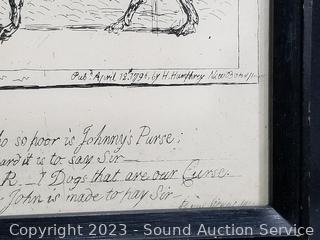 Pubd. April 12th 1796, by H. Humphrey New Bond
so poor is Johnny's Purse;
ard it is to say Sir
R__l Dogs that are our Curse
John is made to pay Sir
Copyright 2023 - Sound Auction Service